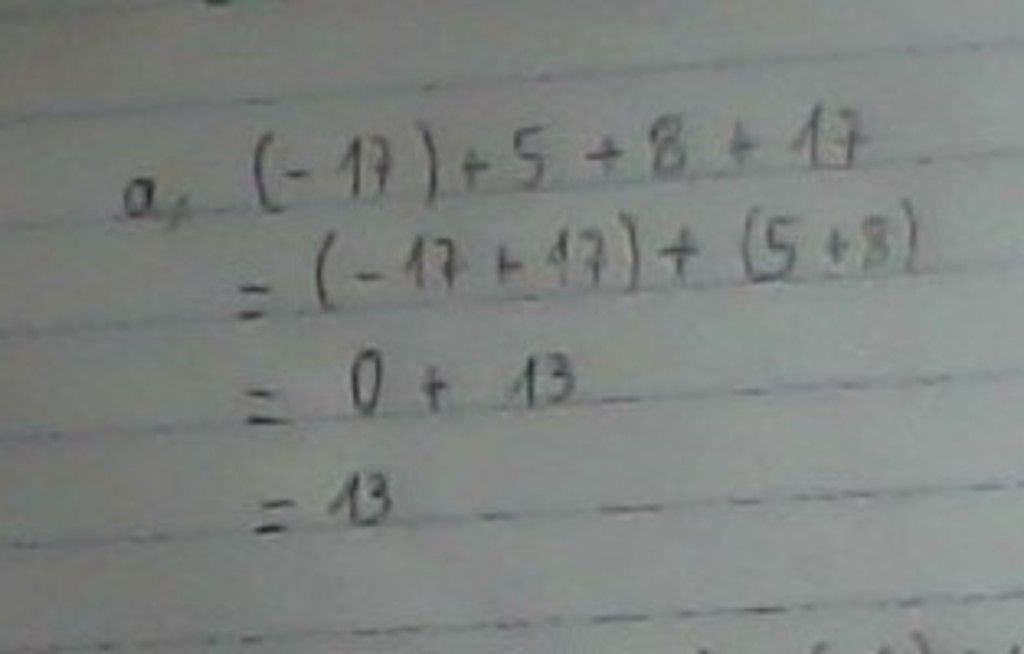 a, (-17) + 5 + 8 + 17
= (-17 + 17) + (5 + 8)
= 0 + 13
= 13